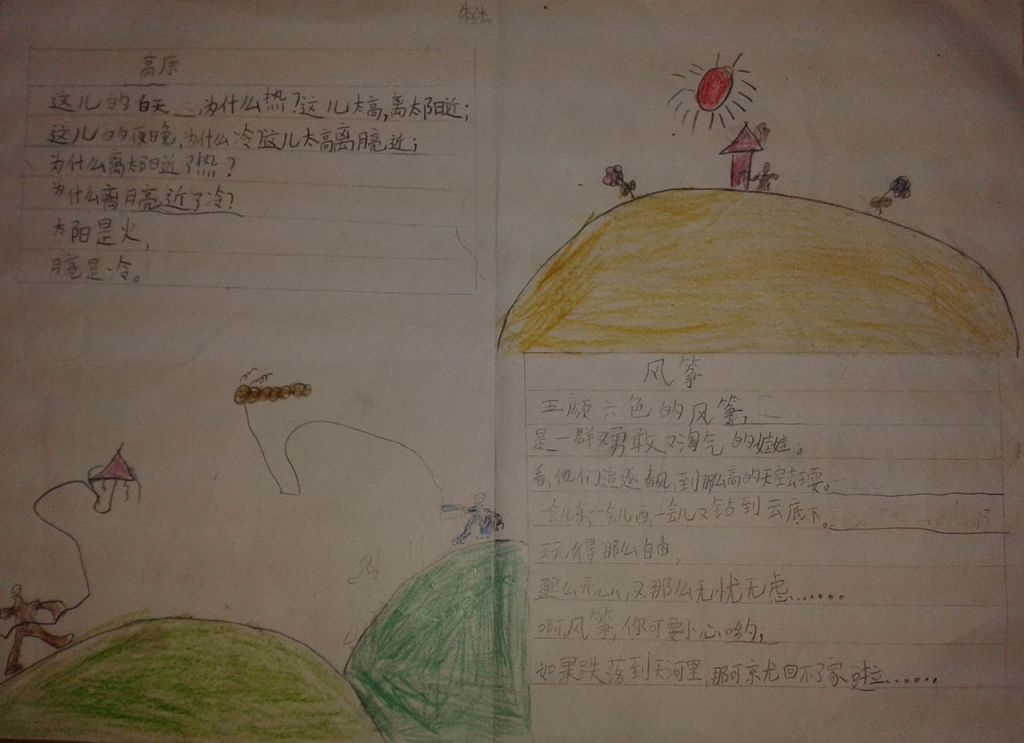 高原
这儿的白天,为什么热?这儿太高,离太阳近;
这儿的夜晚,为什么冷?这儿太高离月亮近;
为什么离太阳近了热?
为什么离月亮近了冷?
太阳是火,
月亮是冷。
风筝
五颜六色的风筝,
是一群又勇敢又淘气的娃娃。
看,他们追逐着风,到那么高的天空去耍。
一会儿东一会儿西,一会儿又钻到云底下。
玩得那么自由,
那么开心,又那么无忧无虑……
啊,风筝,你可要小心哟,
如果跌落到天河里,那可就回不了家啦……